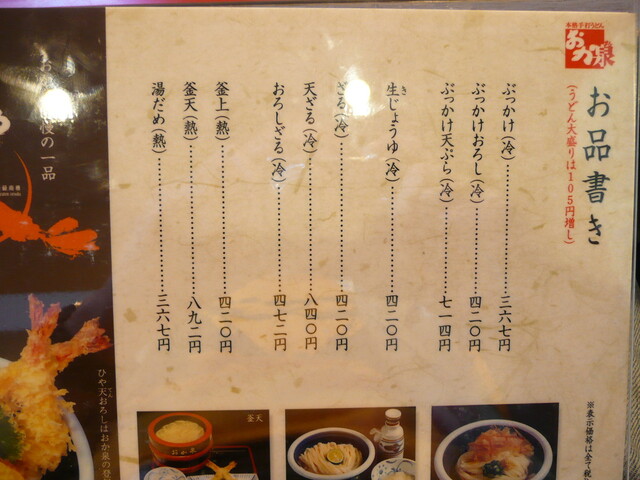 本格手打うどん
おか泉
お品書き
(うどん大盛りは105円増し)
ぶっかけ(冷)…………三六七円
ぶっかけおろし(冷)…………四二〇円
ぶっかけ天ぷら(冷)…………七一四円
生じょうゆ(冷)…………四二〇円
ざる(冷)…………四二〇円
天ざる(冷)…………八四〇円
おろしざる(冷)…………四七二円
釜上(熱)…………四二〇円
釜天(熱)…………八九二円
湯だめ(熱)…………三六七円
※表示価格は全て税
釜天
おか泉
の一品
ひや天おろしはおか泉の登